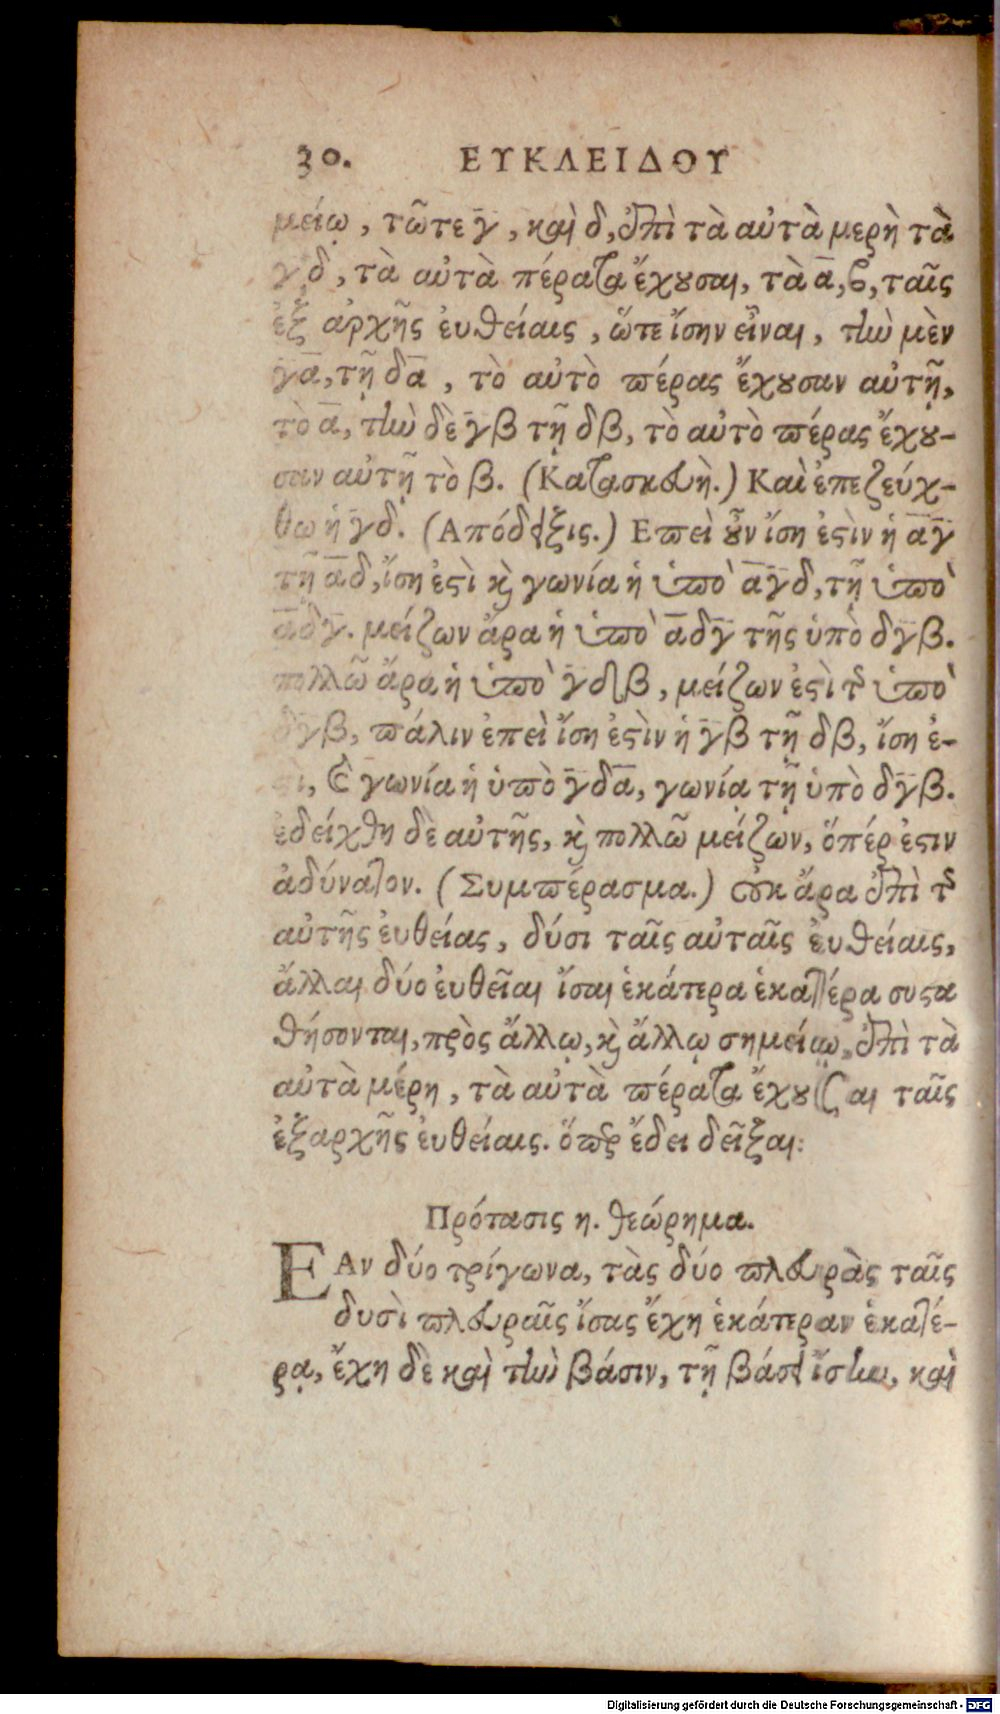 30. ΕΥΚΛΕΙΔΟΥ
μείῳ, τῶτε γ̄, καὶ δ, ἐπὶ τὰ αὐτὰ μερὴ τὰ
γ, δ, τὰ αὐτὰ πέρατα ἔχουσαι, τὰ ᾱ, β, ταῖς
ἐξ ἀρχῆς ἐυθείαις, ὥτε ἴσην εἶναι, τὴν μὲν
γ̄ᾱ, τῇ δᾱ, τὸ αὐτὸ πέρας ἔχουσαν αὐτῇ,
τὸ ᾱ, τὴν δὲ γ̄β τῇ δβ, τὸ αὐτὸ πέρας ἔχου-
σαν αὐτῇ τὸ β. (Κατασκευὴ.) Καὶ ἐπεζεύχ-
θω ἡ γ̄δ. (Απόδειξις.) Επεὶ οὖν ἴση ἐστὶν ἡ ᾱγ̄
τῇ ᾱδ, ἴση ἐστὶ καὶ γωνία ἡ ὑπὸ ᾱγ̄δ, τῇ ὑπὸ
ᾱδγ̄. μείζων ἄρα ἡ ὑπὸ ᾱδγ̄ τῆς ὑπὸ δγ̄β.
πολλῶ ἄρα ἡ ὑπὸ γ̄δβ, μείζων ἐστὶ τῆς ὑπὸ
δγ̄β, πάλιν ἐπεὶ ἴση ἐστὶν ἡ γ̄β τῇ δβ, ἴση ἐ-
στὶ, καὶ γωνία ἡ ὑπὸ γ̄δᾱ, γωνίᾳ τῇ ὑπὸ δγ̄β.
ἐδείχθη δὲ αὐτῆς, καὶ πολλῶ μείζων, ὅπέρ ἐστιν
ἀδύνατον. (Συμπέρασμα.) οὐκ ἄρα ἐπὶ τῆς
αὐτῆς ἐυθείας, δύσι ταῖς αὐταῖς ἐυθείαις,
ἄλλαι δύο ἐυθεῖαι ἴσαι ἑκάτερα ἑκατέρα συστα
θήσονται, πρὸς ἄλλῳ, καὶ ἄλλῳ σημείῳ, ἐπὶ τὰ
αὐτὰ μέρη, τὰ αὐτὰ πέρατα ἔχουσαι ταῖς
ἐξαρχῆς ἐυθείαις. ὅπερ ἔδει δεῖξαι:
Πρότασις η. θεώρημα.
ΕΑν δύο τρίγωνα, τὰς δύο πλευρὰς ταῖς
δυσὶ πλευραῖς ἴσας ἔχη ἑκάτεραν ἑκατέ-
ρᾳ, ἔχη δὲ καὶ τὴν βάσιν, τῇ βάσει ἴσην, καὶ
Digitalisierung gefördert durch die Deutsche Forschungsgemeinschaft - DFG